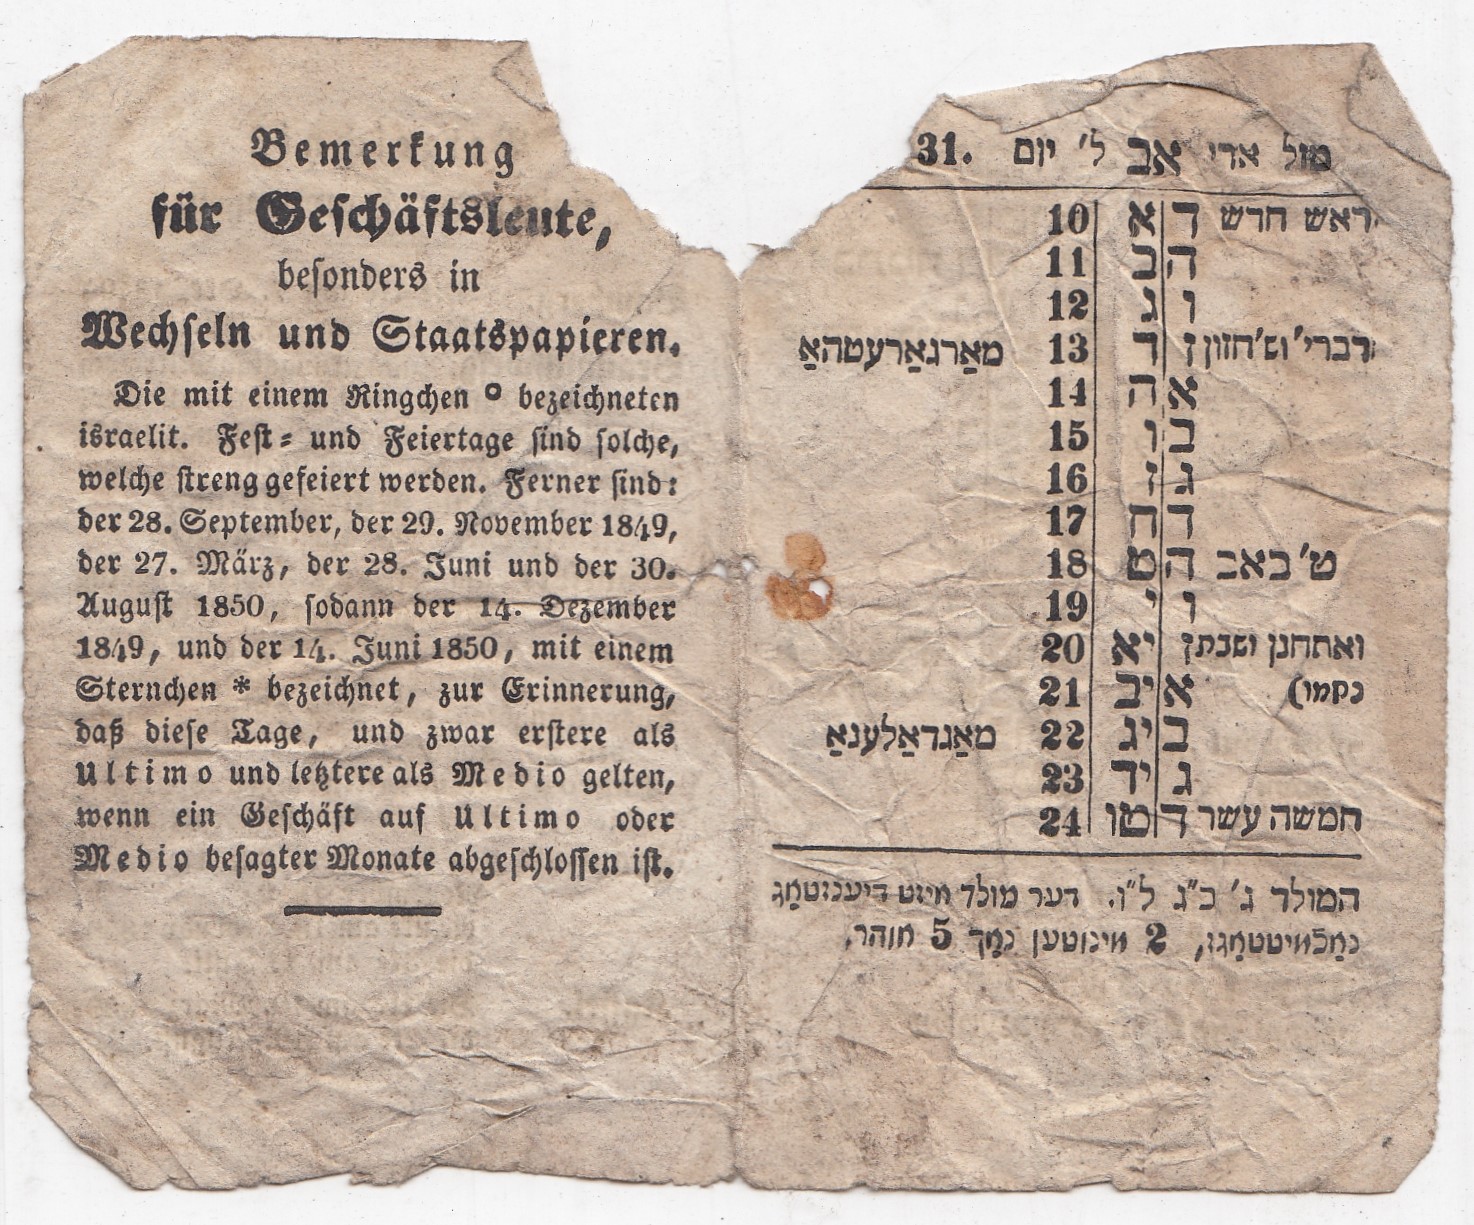 Bemerkung
für Geschäftsleute,
besonders in
Wechseln und Staatspapieren.
Die mit einem Ringchen ° bezeichneten
israelit. Fest= und Feiertage sind solche,
welche streng gefeiert werden. Ferner sind:
der 28. September, der 29. November 1849,
der 27. März, der 28. Juni und der 30.
August 1850, sodann der 14. Dezember
1849, und der 14. Juni 1850, mit einem
Sternchen * bezeichnet, zur Erinnerung,
daß diese Tage, und zwar erstere als
Ultimo und letztere als Medio gelten,
wenn ein Geschäft auf Ultimo oder
Medio besagter Monate abgeschlossen ist.
מזל ארי אב ל׳ יום 31.
ראש חדש ד א 10
ה ב 11
ו ג 12
דברי׳ ש׳חזון ז ד 13 מאַרגאַרעטהאַ
א ה 14
ב ו 15
ג ז 16
ד ח 17
ט׳ באב ה ט 18
ו י 19
ואתחנן ושבת ז יא 20
נחמו) א יב 21
ב יג 22 מאַגדאַלענאַ
ג יד 23
חמשה עשר ד טו 24
המולד ג׳ כ״ג ל״ו. דער מולד איזט דיענזטאַג
נאַכמיטטאַגז, 2 מינוטען נאַך 5 אוהר.